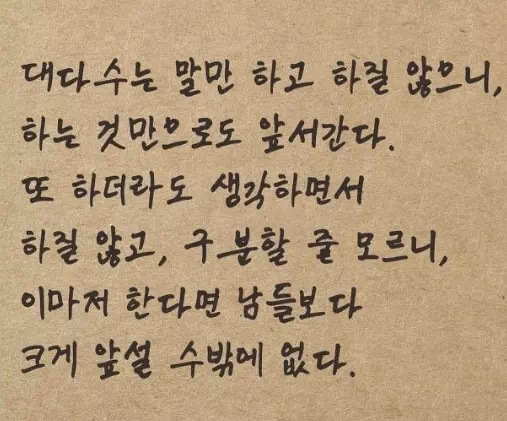 대다수는 말만 하고 하질 않으니,
하는 것만으로도 앞서간다.
또 하더라도 생각하면서
하질 않고, 구분할 줄 모르니,
이마저 한다면 남들보다
크게 앞설 수밖에 없다.